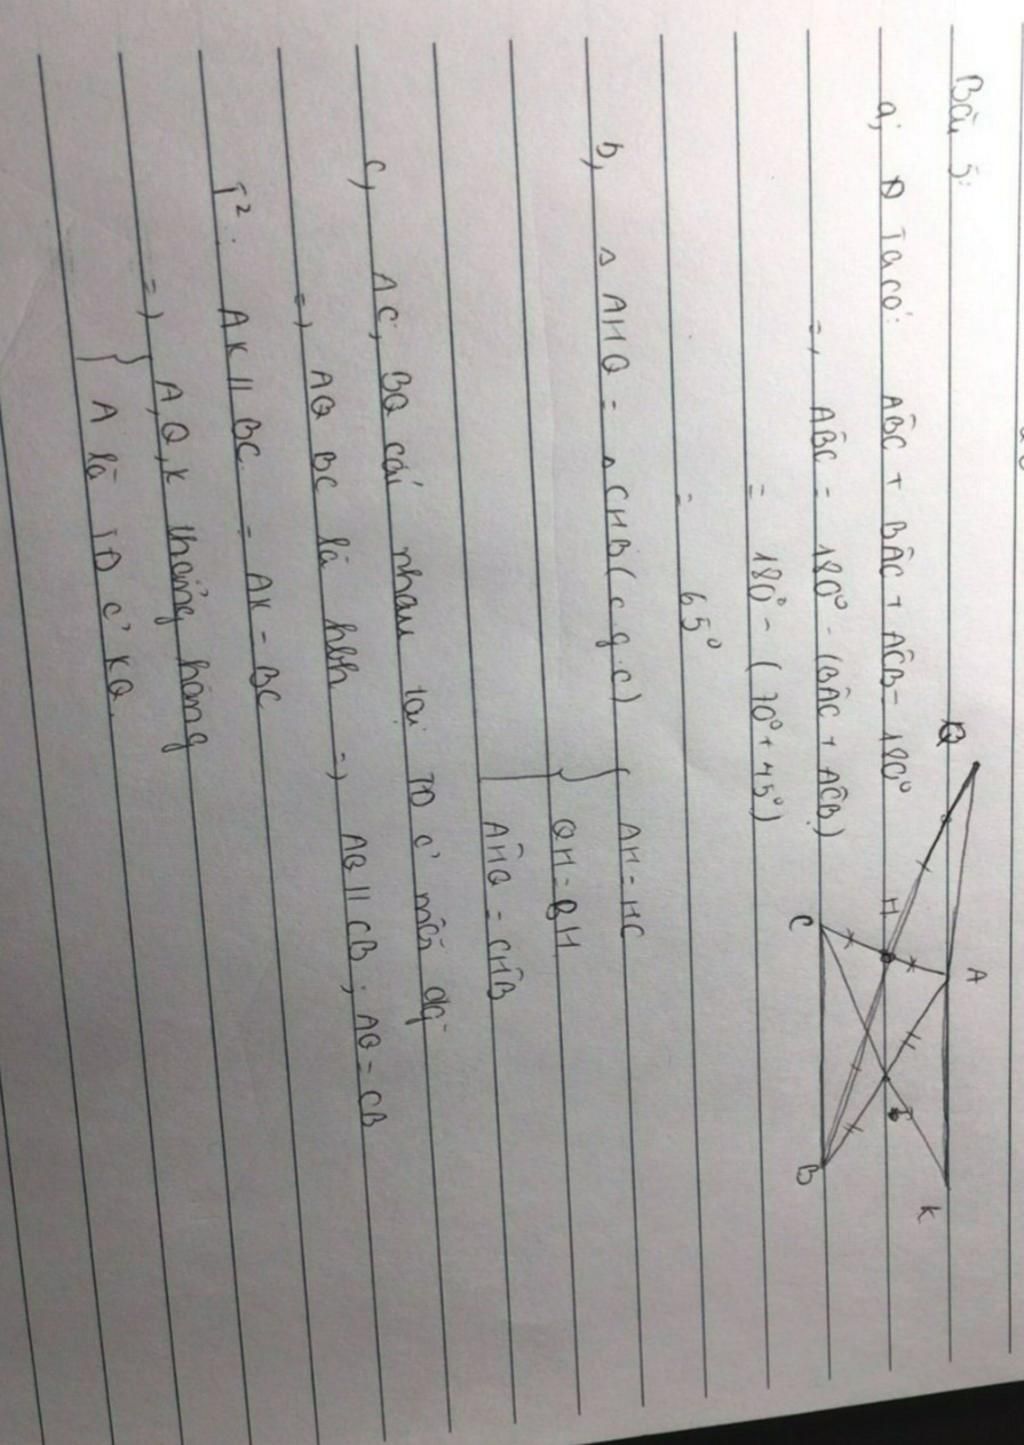 Bài 5:
a; Ta có: AB̂C + BÂC + AĈB = 180°
=, AB̂C = 180° - (BÂC + AĈB)
= 180° - (70° + 45°)
= 65°
b, △ AHQ = △ CHB (c g.c) { AH = HC
QH = BH
AĤQ = CĤB
c, AC; BQ cắt nhau tại TĐ c' mỗi đg
=) AQ BC là hbh =) AQ // CB ; AQ = CB
T²: AK // BC = AK = BC
=) A, Q, K thẳng hàng
A là TĐ c' KQ.
Q
H
A
C
I
B
K